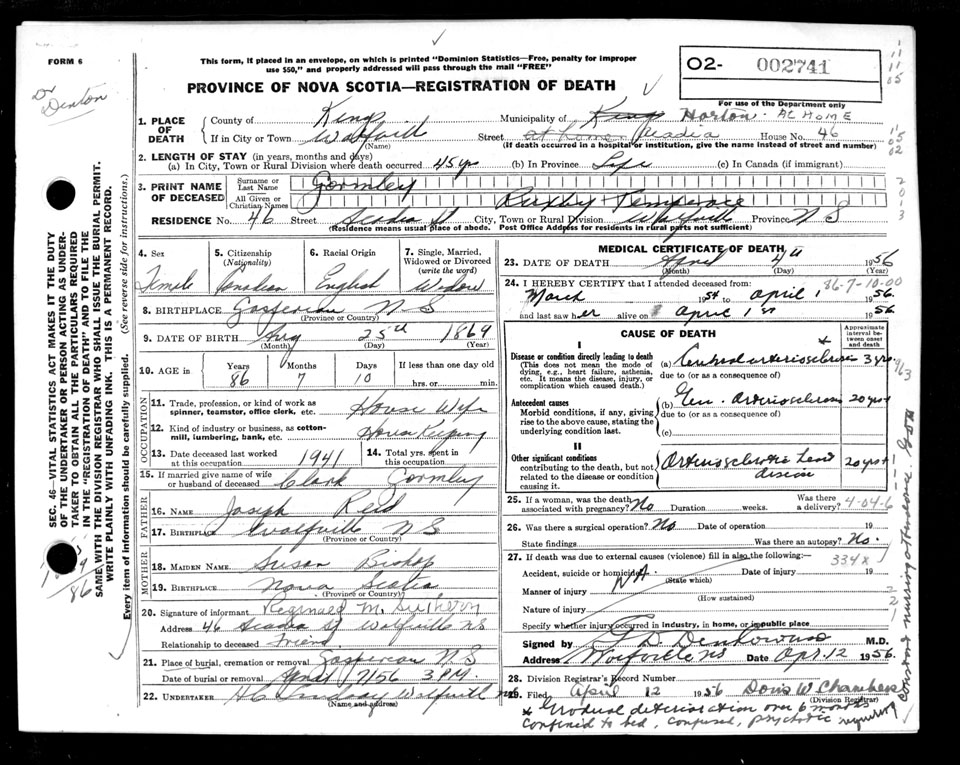 FORM 6
Dr Denton
This form, if placed in an envelope, on which is printed "Dominion Statistics—Free, penalty for improper
use $50," and properly addressed will pass through the mail "FREE"
PROVINCE OF NOVA SCOTIA—REGISTRATION OF DEATH
O2- 002741
For use of the Department only
1. PLACE OF DEATH
County of Kings Municipality of Kings Horton - AT HOME
If in City or Town Wolfville Street at home Acadia House No. 46
(Name) (If death occurred in a hospital or institution, give the name instead of street and number)
2. LENGTH OF STAY (in years, months and days)
(a) In City, Town or Rural Division where death occurred 45 yrs (b) In Province Life (c) In Canada (if immigrant)
3. PRINT NAME OF DECEASED
Surname or Last Name Gormley
All Given or Christian Names Temperance
RESIDENCE No. 46 Street Acadia St City, Town or Rural Division Wolfville Province N S
(Residence means usual place of abode. Post Office Address for residents in rural parts not sufficient)
4. Sex Female
5. Citizenship (Nationality) Canadian
6. Racial Origin English
7. Single, Married, Widowed or Divorced (write the word) Widow
8. BIRTHPLACE Gaspereau N S
(Province or Country)
9. DATE OF BIRTH Aug 25th 1869
(Month) (Day) (Year)
10. AGE in Years 86 Months 7 Days 10 If less than one day old hrs. or min.
OCCUPATION
11. Trade, profession, or kind of work as spinner, teamster, office clerk, etc. House Wife
12. Kind of industry or business, as cotton-mill, lumbering, bank, etc. House Keeping
13. Date deceased last worked at this occupation 1941 14. Total yrs. spent in this occupation
15. If married give name of wife or husband of deceased Clark Gormley
FATHER
16. NAME Joseph Reid
17. BIRTHPLACE Wolfville N S
(Province or Country)
MOTHER
18. MAIDEN NAME Susan Bishop
19. BIRTHPLACE Nova Scotia
(Province or Country)
20. Signature of informant Reginald M.
Address 46 Acadia St Wolfville NS
Relationship to deceased Friend
21. Place of burial, cremation or removal Gaspereau N S
Date of burial or removal April 7/56 3 P.M.
22. UNDERTAKER H C Lindsay Wolfville NS
(Name and address)
MEDICAL CERTIFICATE OF DEATH
23. DATE OF DEATH April 4th 1956
(Month) (Day) (Year)
86-7-10-00
24. I HEREBY CERTIFY that I attended deceased from:
March 1st to April 1 1956
and last saw her alive on April 1st 1956
CAUSE OF DEATH
Approximate interval between onset and death
I
Disease or condition directly leading to death
(This does not mean the mode of dying, e.g., heart failure, asthenia, etc. It means the disease, injury, or complication which caused death.)
(a) Cerebral arteriosclerosis 3 yrs
due to (or as a consequence of)
Antecedent causes
Morbid conditions, if any, giving rise to the above cause, stating the underlying condition last.
(b) Gen. Arteriosclerosis 20 yrs+
due to (or as a consequence of)
(c)
II
Other significant conditions
contributing to the death, but not related to the disease or condition causing it.
Arteriosclerotic heart disease 20 yrs+
25. If a woman, was the death associated with pregnancy? No Duration weeks. Was there a delivery?
4-04-6
26. Was there a surgical operation? No Date of operation 19
State findings Was there an autopsy? No.
27. If death was due to external causes (violence) fill in also the following:—
334x
Accident, suicide or homicide? NA Date of injury 19
(State which)
Manner of injury
(How sustained)
Nature of injury
Specify whether injury occurred in industry, in home, or in public place
Signed by M.D.
Address Wolfville NS Date Apr. 12 1956.
28. Division Registrar's Record Number
29. Filed April 12 1956 Doris W Chambers
(Division Registrar)
* Gradual deterioration over 6 months
Confined to bed, confused, psychotic requiring
constant nursing
SEC. 46—VITAL STATISTICS ACT MAKES IT THE DUTY
OF THE UNDERTAKER OR PERSON ACTING AS UNDER-
TAKER TO OBTAIN ALL THE PARTICULARS REQUIRED
IN THE "REGISTRATION OF DEATH" AND TO FILE THE
SAME WITH THE DIVISION REGISTRAR WHO SHALL ISSUE THE BURIAL PERMIT.
WRITE PLAINLY WITH UNFADING INK. THIS IS A PERMANENT RECORD.
Every item of information should be carefully supplied. (See reverse side for instructions.)